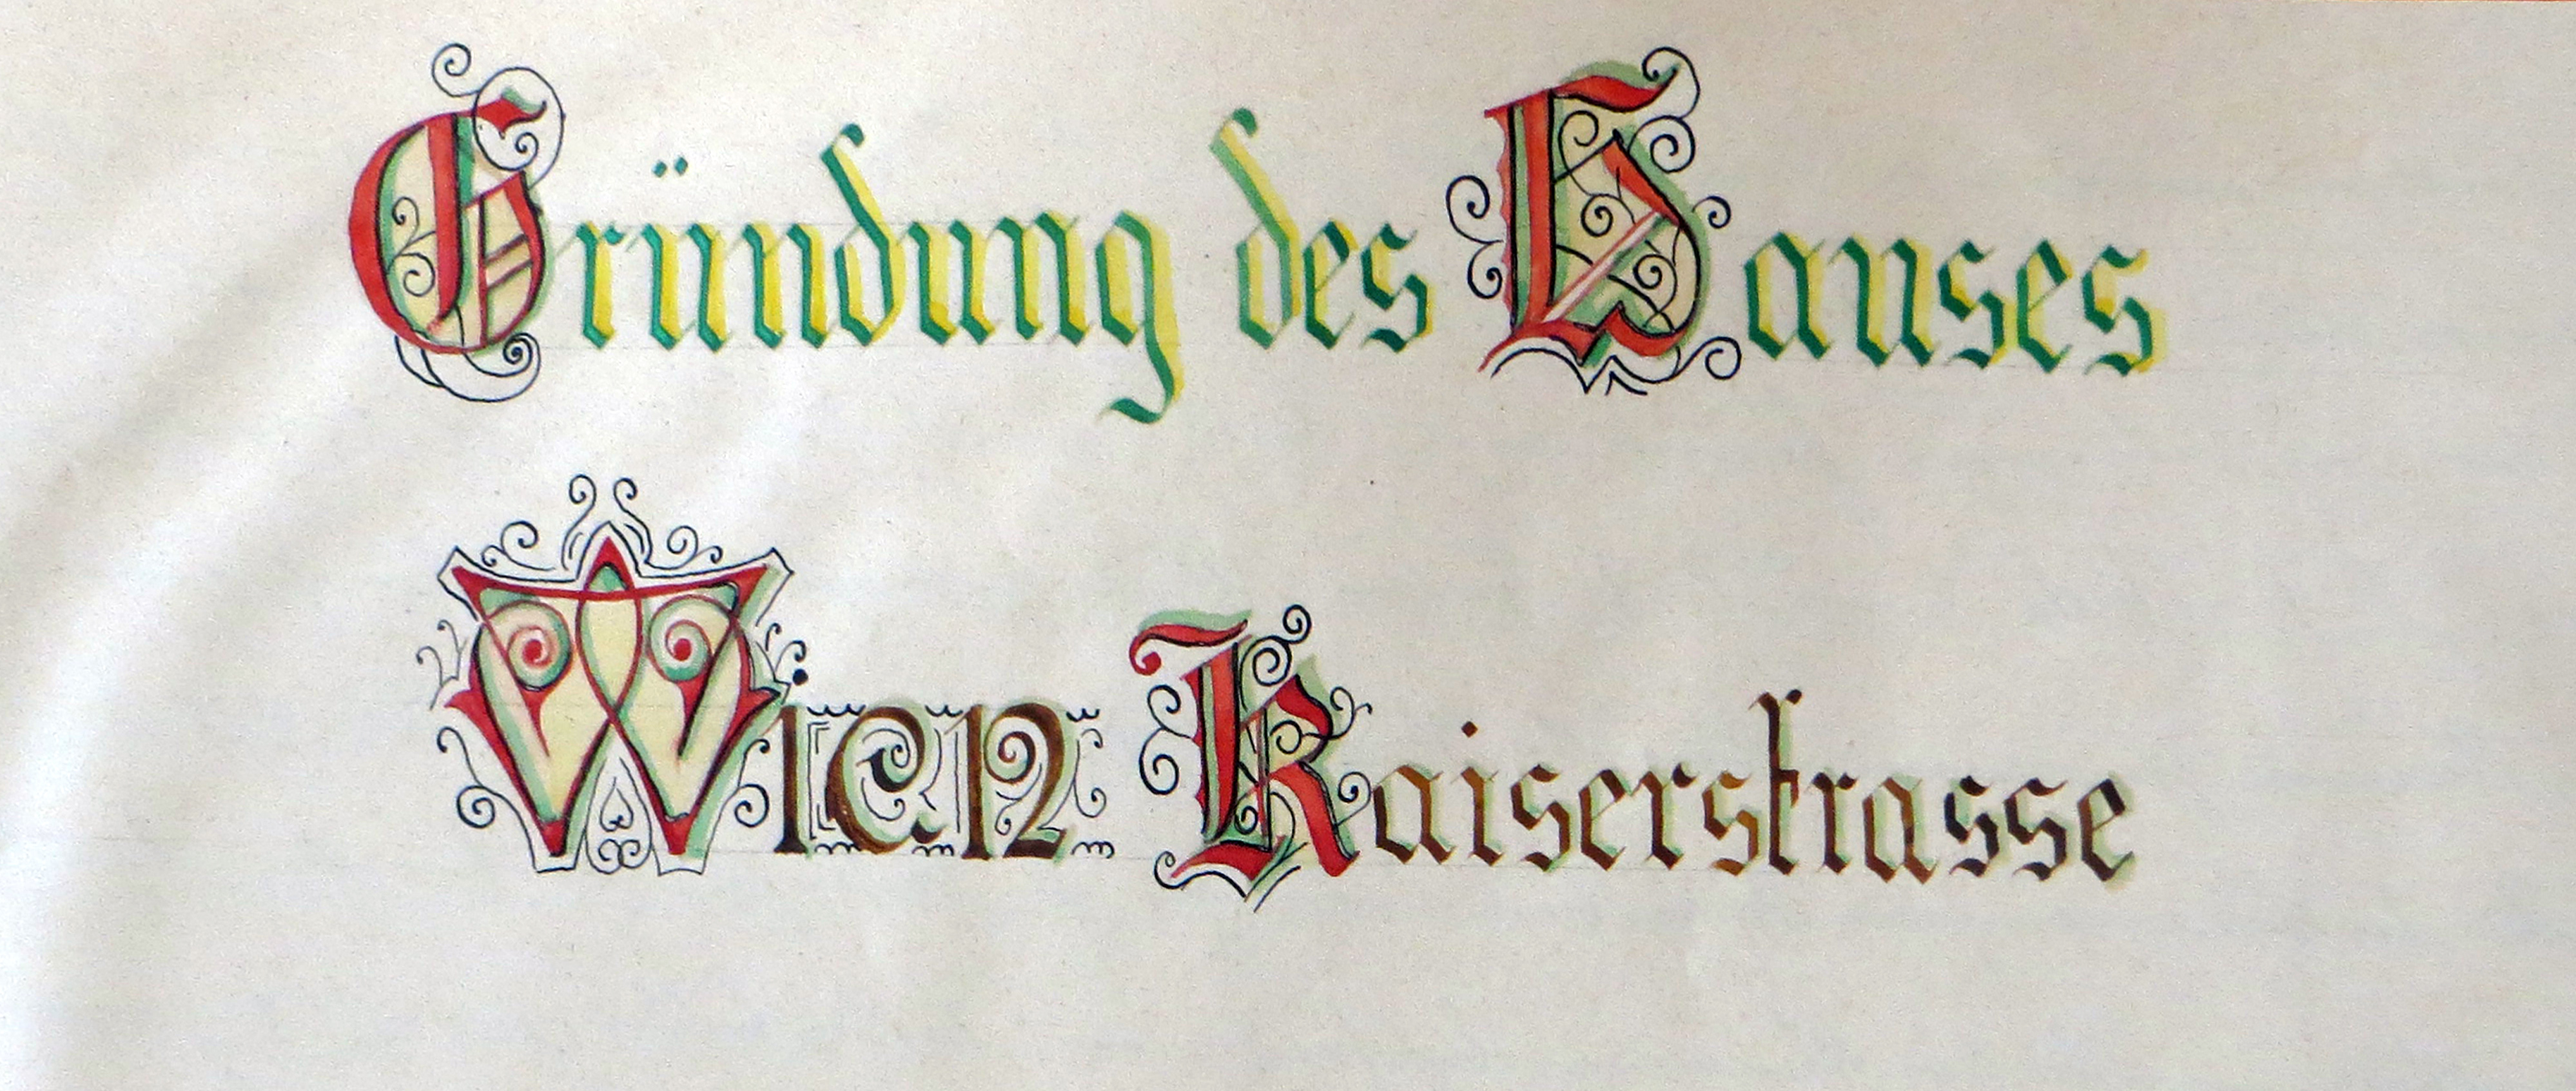 Gründung des Hauses
Wien Kaiserstrasse